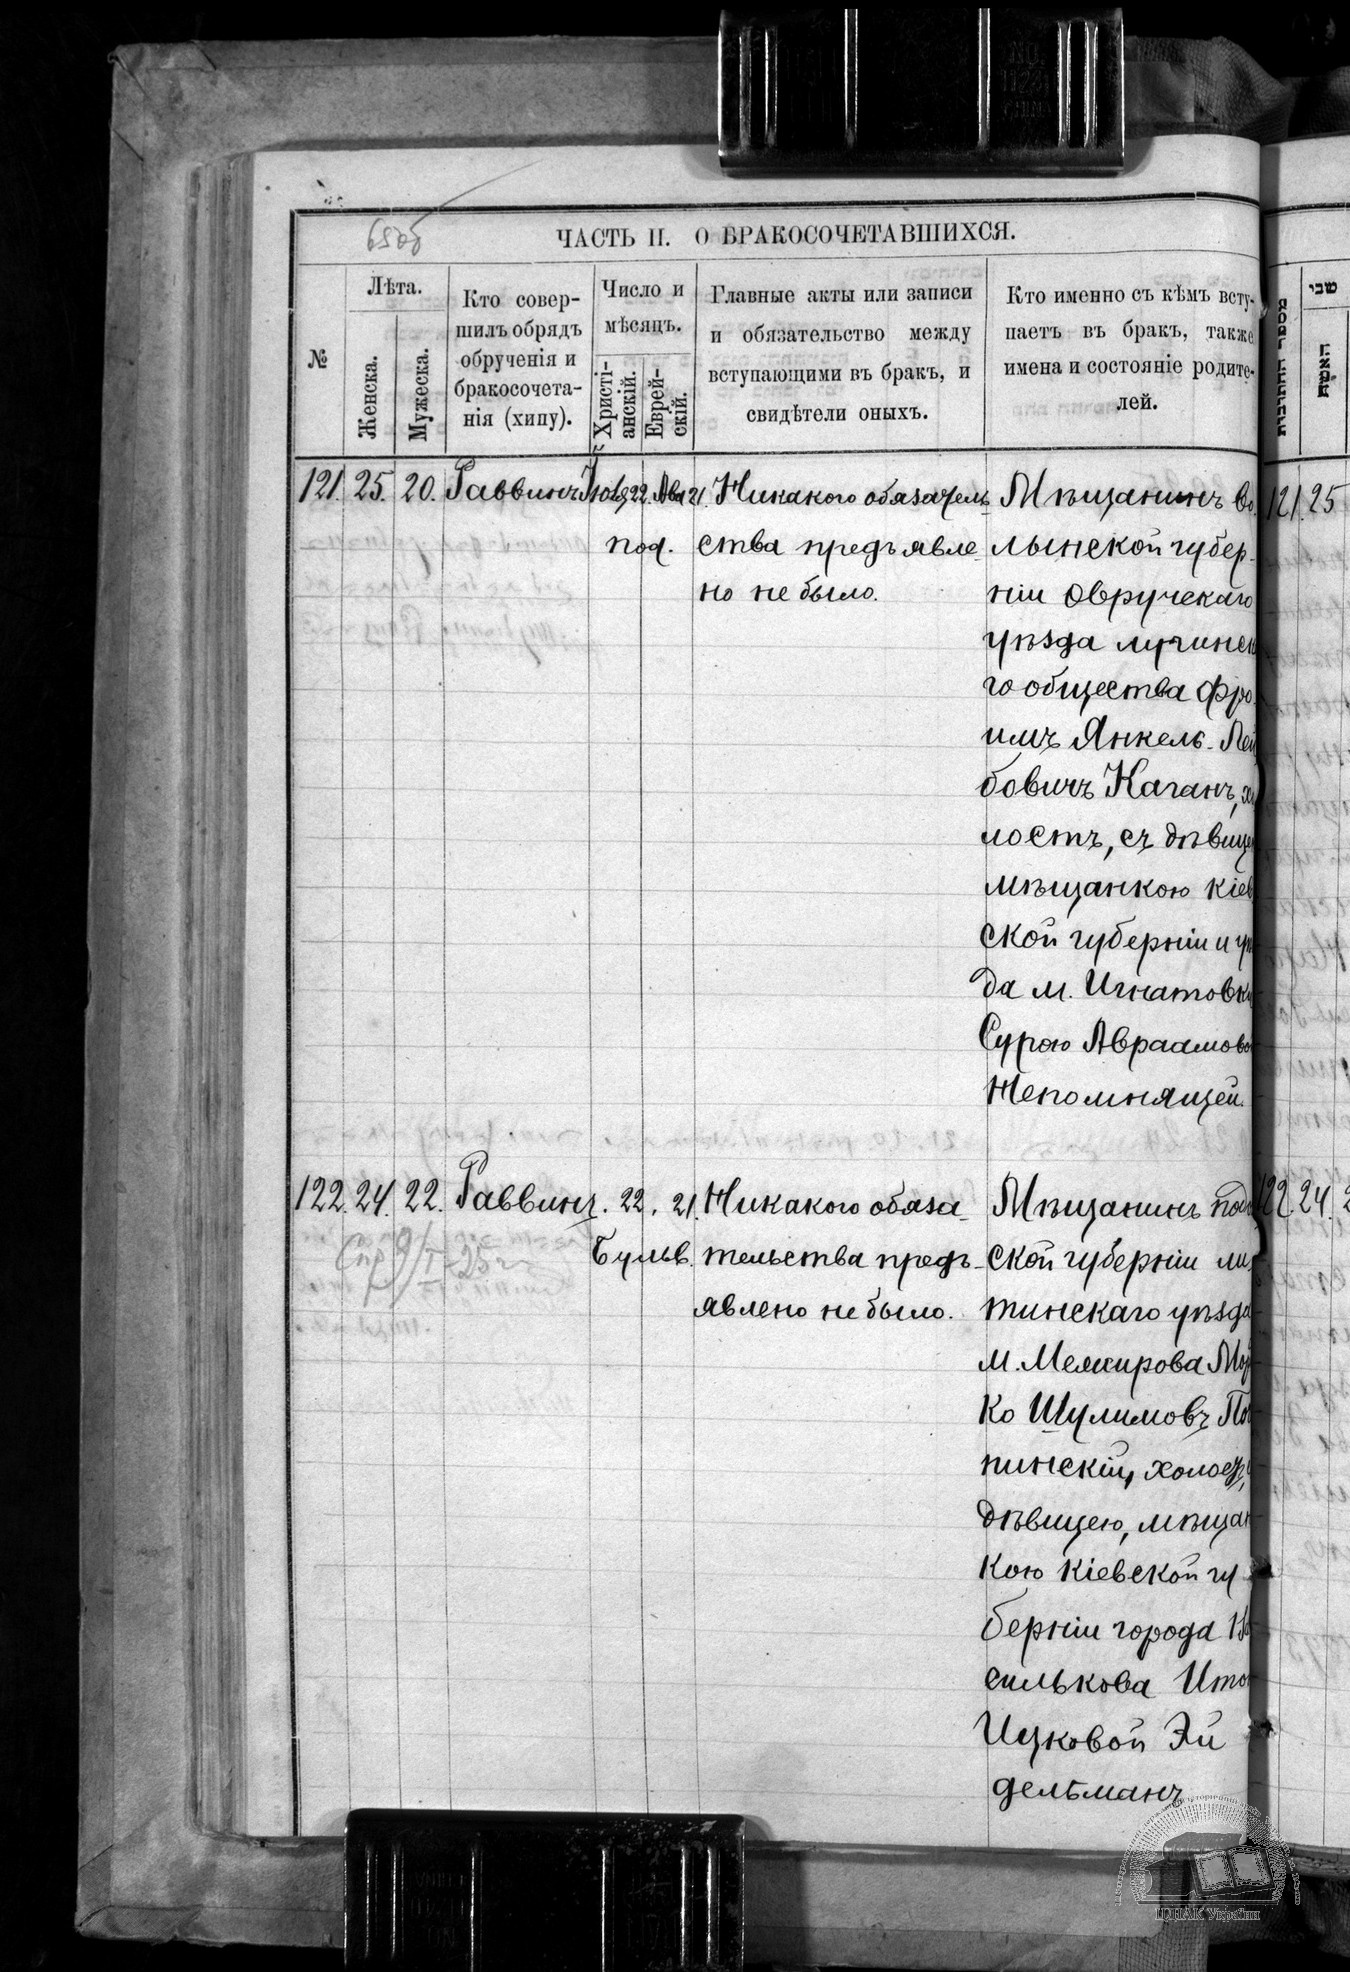 ЧАСТЬ II. О БРАКОСОЧЕТАВШИХСЯ.
№
Лѣта.
Женска.
Мужеска.
Кто совер-
шилъ обрядъ
обрученія и
бракосочета-
нія (хипу).
Число и
мѣсяцъ.
Христі-
анскій.
Еврей-
скій.
Главные акты или записи
и обязательство между
вступающими въ бракъ, и
свидѣтели оныхъ.
Кто именно съ кѣмъ всту-
паетъ въ бракъ, также
имена и состояніе родите-
лей.
מספר החתונות
שני
האשה
121. 25. 20. Раввинъ Іюля 22. Ава 21.
под.
Никакого обязатель-
ства предъявле-
но не было.
Мѣщанинъ Во-
лынской губер-
ніи Овручскаго
уѣзда лугинска
го общества Фро-
имъ Янкель-Лей
бовичъ Каганъ, хо
лостъ, съ дѣвицею
мѣщанкою кіев
ской губерніи и уѣз
да м. Игнатовки
Сурою Авраамово
Непомнящей.
121. 25
122. 24. 22. Раввинъ. 22. 21.
Бульв.
Спр 9/I-25 г
Никакого обяза-
тельства предъ-
явлено не было.
Мѣщанинъ подо
ской губерніи ли
тинскаго уѣзда
м. Межирова Мор
ко Шулимовъ По
пинскій, холостъ, с
дѣвицею, мѣщан
кою кіевской гу
берніи города Ва
силькова Итою
Ицковой Эй
дельманъ
122. 24. 2
ЦДІАК України